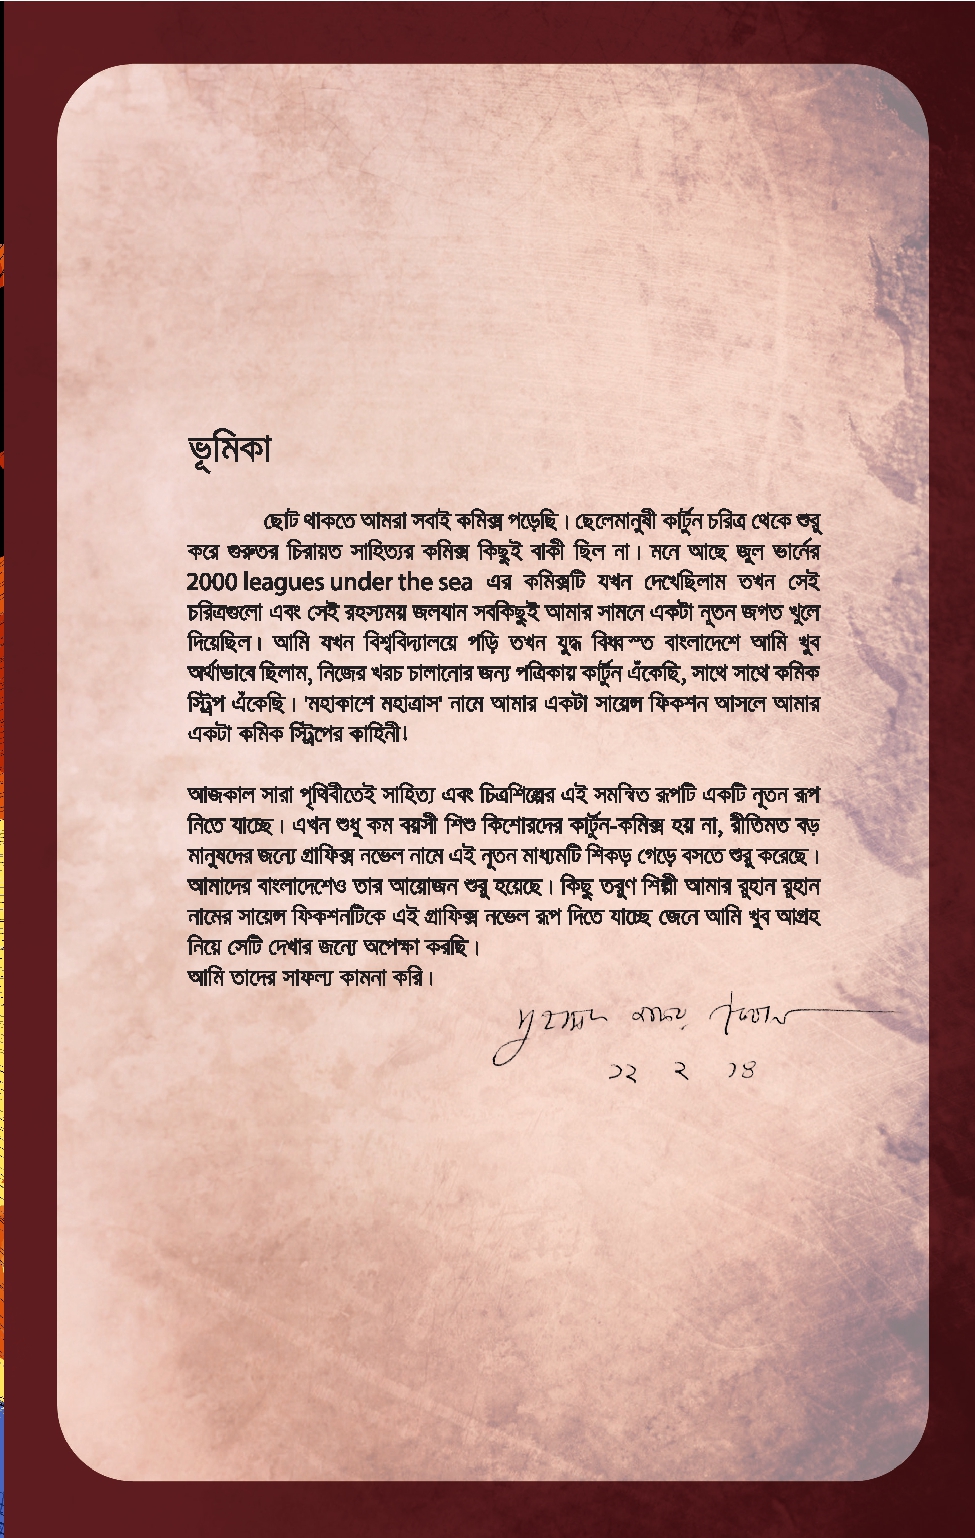 ভূমিকা
ছোট থাকতে আমরা সবাই কমিক্স পড়েছি। ছেলেমানুষী কার্টুন চরিত্র থেকে শুরু
করে গুরুতর চিরায়ত সাহিত্যর কমিক্স কিছুই বাকী ছিল না। মনে আছে জুল ভার্নের
2000 leagues under the sea এর কমিক্সটি যখন দেখেছিলাম তখন সেই
চরিত্রগুলো এবং সেই রহস্যময় জলযান সবকিছুই আমার সামনে একটা নূতন জগত খুলে
দিয়েছিল। আমি যখন বিশ্ববিদ্যালয়ে পড়ি তখন যুদ্ধ বিধ্বস্ত বাংলাদেশে আমি খুব
অর্থাভাবে ছিলাম, নিজের খরচ চালানোর জন্য পত্রিকায় কার্টুন এঁকেছি, সাথে সাথে কমিক
স্ট্রিপ এঁকেছি। 'মহাকাশে মহাত্রাস' নামে আমার একটা সায়েন্স ফিকশন আসলে আমার
একটা কমিক স্ট্রিপের কাহিনী।
আজকাল সারা পৃথিবীতেই সাহিত্য এবং চিত্রশিল্পের এই সমন্বিত রূপটি একটি নূতন রূপ
নিতে যাচ্ছে। এখন শুধু কম বয়সী শিশু কিশোরদের কার্টুন-কমিক্স হয় না, রীতিমত বড়
মানুষদের জন্যে গ্রাফিক্স নভেল নামে এই নূতন মাধ্যমটি শিকড় গেড়ে বসতে শুরু করেছে।
আমাদের বাংলাদেশেও তার আয়োজন শুরু হয়েছে। কিছু তরুণ শিল্পী আমার রুহান রুহান
নামের সায়েন্স ফিকশনটিকে এই গ্রাফিক্স নভেল রূপ দিতে যাচ্ছে জেনে আমি খুব আগ্রহ
নিয়ে সেটি দেখার জন্যে অপেক্ষা করছি।
আমি তাদের সাফল্য কামনা করি।
মুহম্মদ জাফর ইকবাল
১২ ২ ১৪